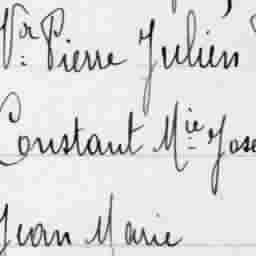 Vr Pierre Julien
Constant Mie Jose
Jean Marie